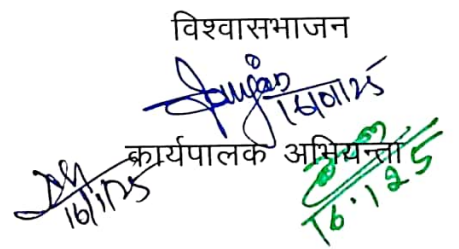 विश्वासभाजन
16/01/25
कार्यपालक अभियन्ता
16/1/25
16.1.25